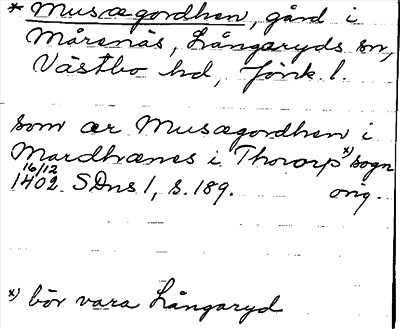 * Musægordhen, gård i
Mårenäs, Långaryds sn,
Västbo hd, Jönk l.
som ær Musægordhen i
Mardhænes i Thorarp x) sogn
16/12
1402. SDns 1, s. 189. orig.
x) bör vara Långaryd